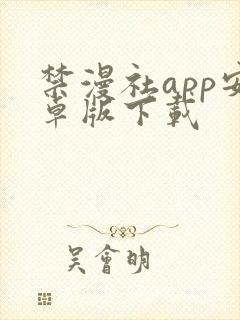 禁漫社app安
卓版下載
吴會明